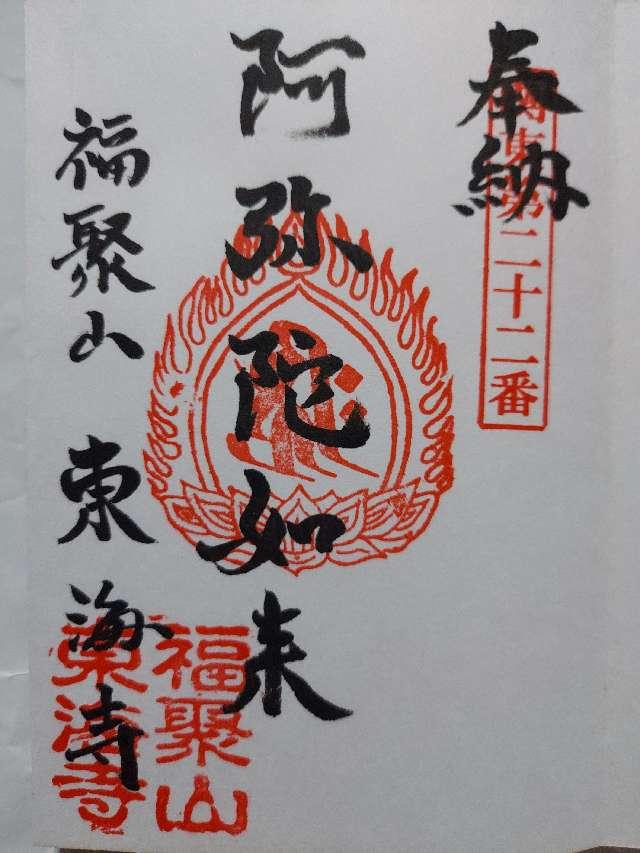 奉納
関東第二十二番
阿弥陀如来
福聚山 東海寺
福聚山
東海寺